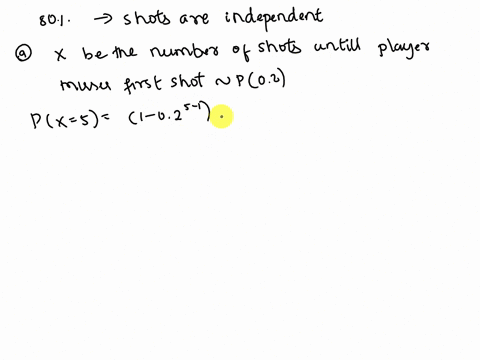 80%. → shots are independent
ⓐ x be the number of shots untill player
misses first shot ~ P(0.2)
P(x=5) = (1-0.2^{5-1}) .